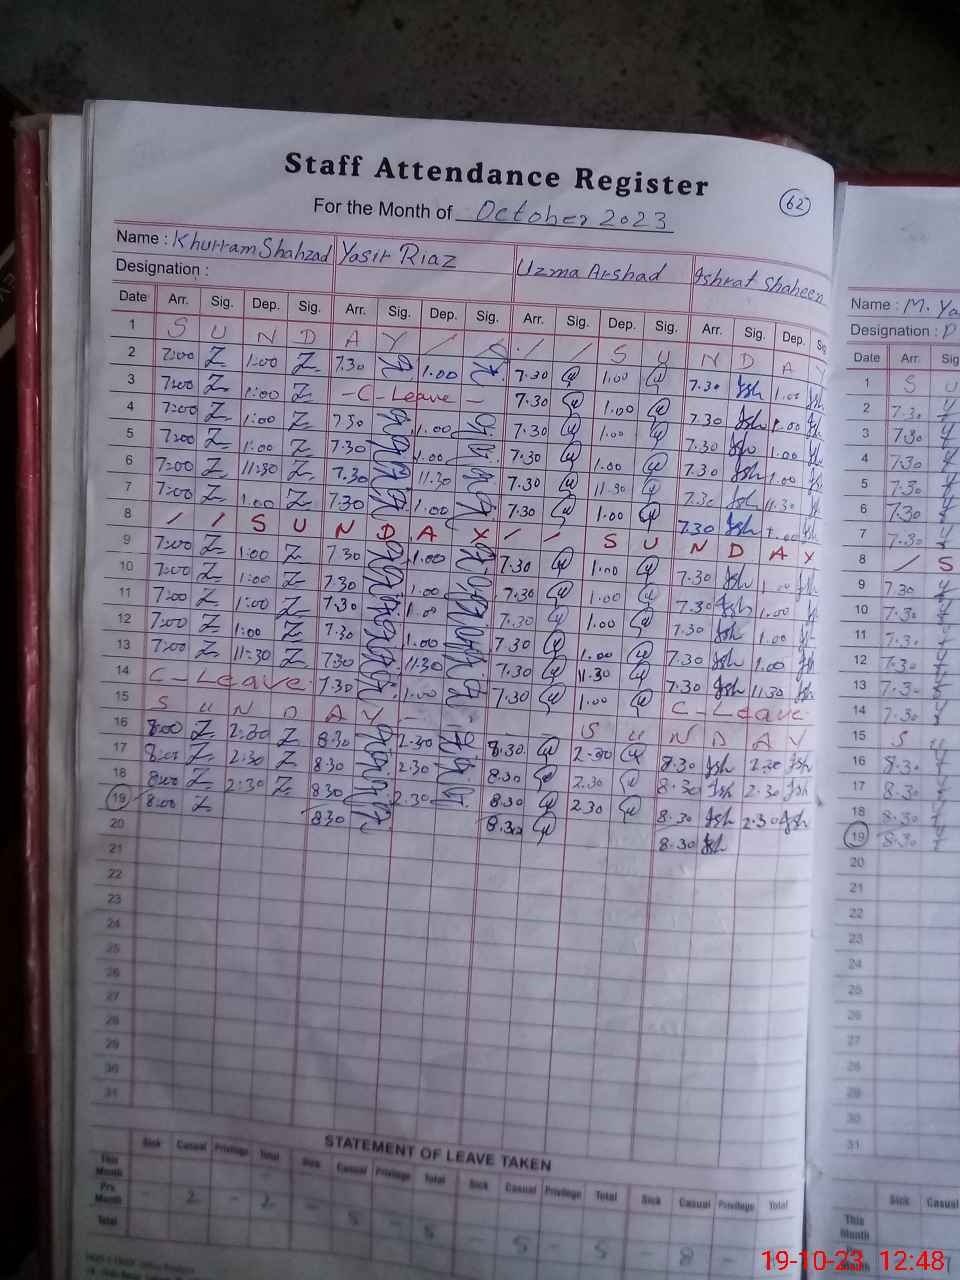 Staff Attendance Register
For the Month of October 2023
62
Name : Khurram Shahzad Yasir Riaz Uzma Arshad Ishrat Shaheen
Designation :
Date Arr. Sig. Dep. Sig. Arr. Sig. Dep. Sig. Arr. Sig. Dep. Sig. Arr. Sig. Dep. Sig
1 S U N D A Y / / / S U N D A Y
2 7:00 1:00 7.30 1.00 7.30 1.00 7.30 1.00
3 7:00 1:00 - C - Leave - 7.30 1.00 7.30 1.00
4 7:00 1:00 7.30 1.00 7.30 1.00 7.30 1.00
5 7:00 1:00 7.30 1.00 7.30 1.00 7.30 1.00
6 7:00 11:30 7.30 11.30 7.30 11.30 7.30 11.30
7 7:00 1.00 7.30 1.00 7.30 1.00 7.30 1.00
8 / / S U N D A Y / / S U N D A Y
9 7:00 1:00 7.30 1.00 7.30 1.00 7.30 1.00
10 7:00 1:00 7.30 1.00 7.30 1.00 7.30 1.00
11 7:00 1:00 7.30 1.00 7.30 1.00 7.30 1.00
12 7:00 1:00 7.30 1.00 7.30 1.00 7.30 1.00
13 7:00 11:30 7.30 11.30 7.30 11.30 7.30 11.30
14 C - Leave 7.30 1.00 7.30 1.00 C - Leave
15 S U N D A Y - - - S U N D A Y
16 8:00 2:30 8.30 2.30 8.30 2.30 8.30 2.30
17 8:00 2:30 8.30 2.30 8.30 2.30 8.30 2.30
18 8:00 2:30 8.30 2.30 8.30 2.30 8.30 2.30
19 8:00 8.30 8.30 8.30
20
21
22
23
24
25
26
27
28
29
30
31
STATEMENT OF LEAVE TAKEN
Sick Casual Privilege Total Sick Casual Privilege Total Sick Casual Privilege Total Sick Casual Privilege Total
This Month
Prv. Month - 2 - 2 - 5 - 5 - 5 - 5 - 8 -
Total
Name : M. Ya
Designation : P
Date Arr. Sig
1 S U
2 7.30
3 7.30
4 7.30
5 7.30
6 7.30
7 7.30
8 / S
9 7.30
10 7.30
11 7.30
12 7.30
13 7.30
14 7.30
15 S U
16 8.30
17 8.30
18 8.30
19 8.30
20
21
22
23
24
25
26
27
28
29
30
31
Sick Casual
This Month
19-10-23 12:48